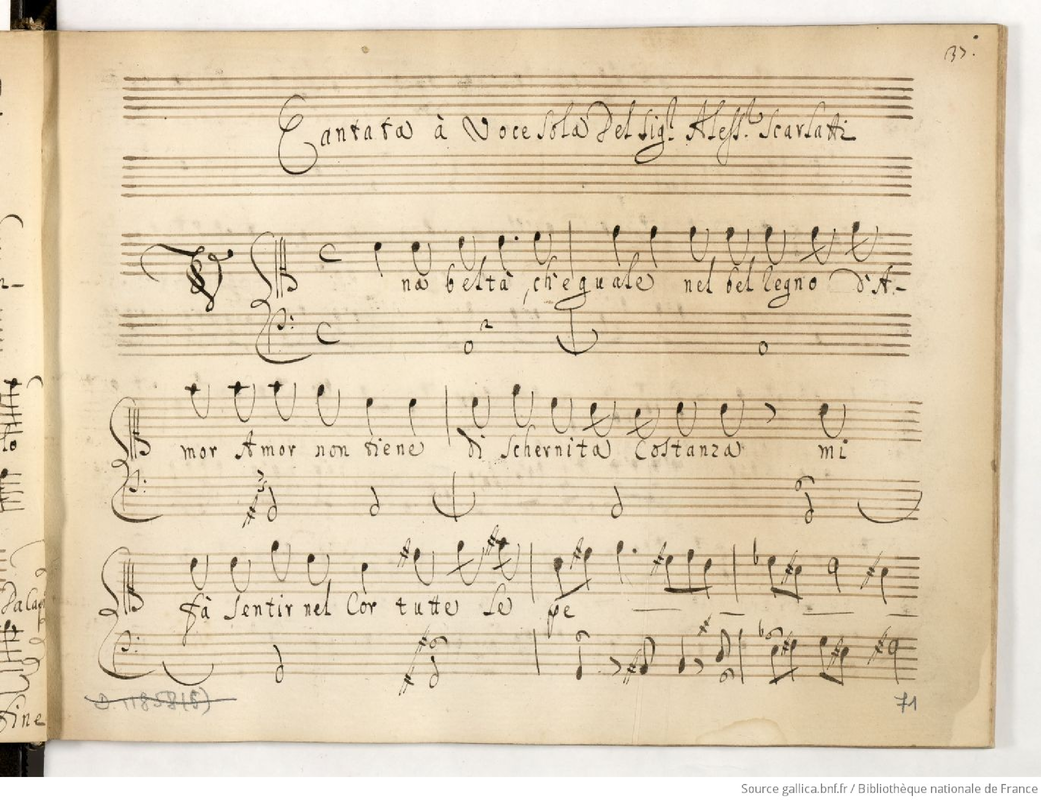 37.
Cantata à Voce Sola Del Sig.r Aless.o Scarlatti
Una beltà, ch'eguale nel bel Regno d'A-
mor Amor non tiene di Schernita Costanza mi
fà Sentir nel Cor tutte le pe
D. 11858(5)
71
fine
Source gallica.bnf.fr / Bibliothèque nationale de France